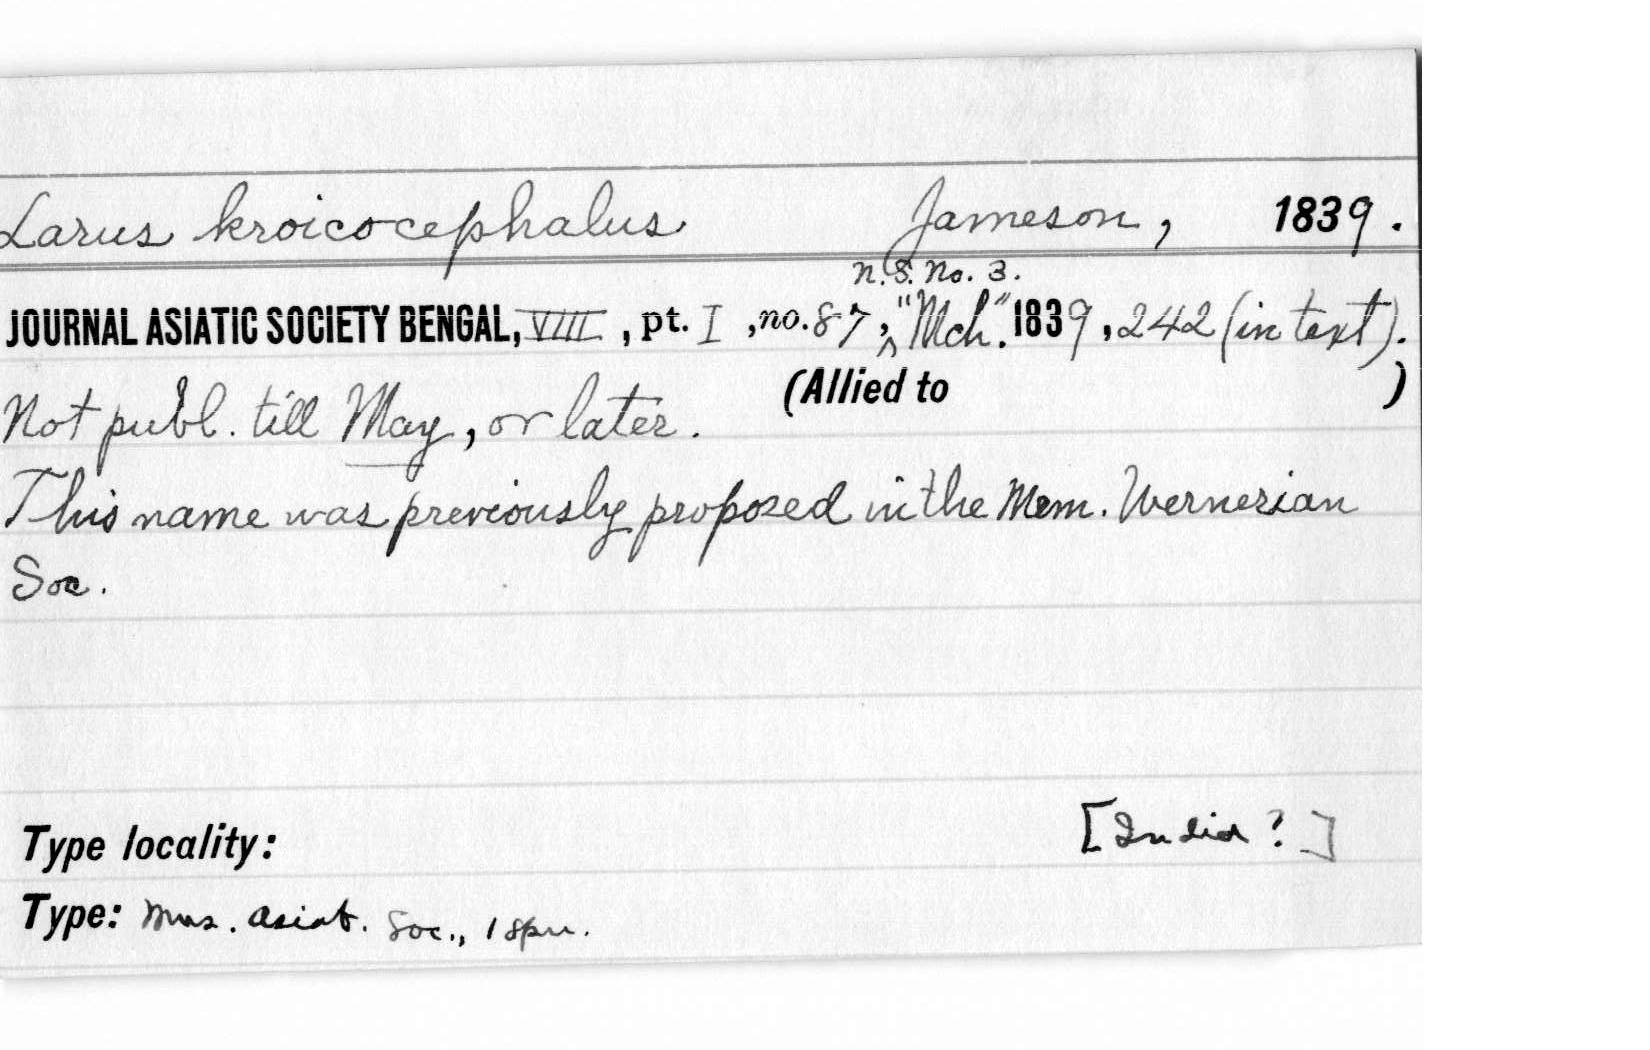 Larus kroicocephalus Jameson, 1839.
n.s. no. 3.
JOURNAL ASIATIC SOCIETY BENGAL, VIII, pt. I, no. 87, ^ "Mch." 1839, 242 (in text).
(Allied to )
Not publ. till May, or later.
This name was previously proposed in the Mem. Wernerian
Soc.
Type locality: [India?]
Type: Mus. Asiat. Soc., 1 spn.